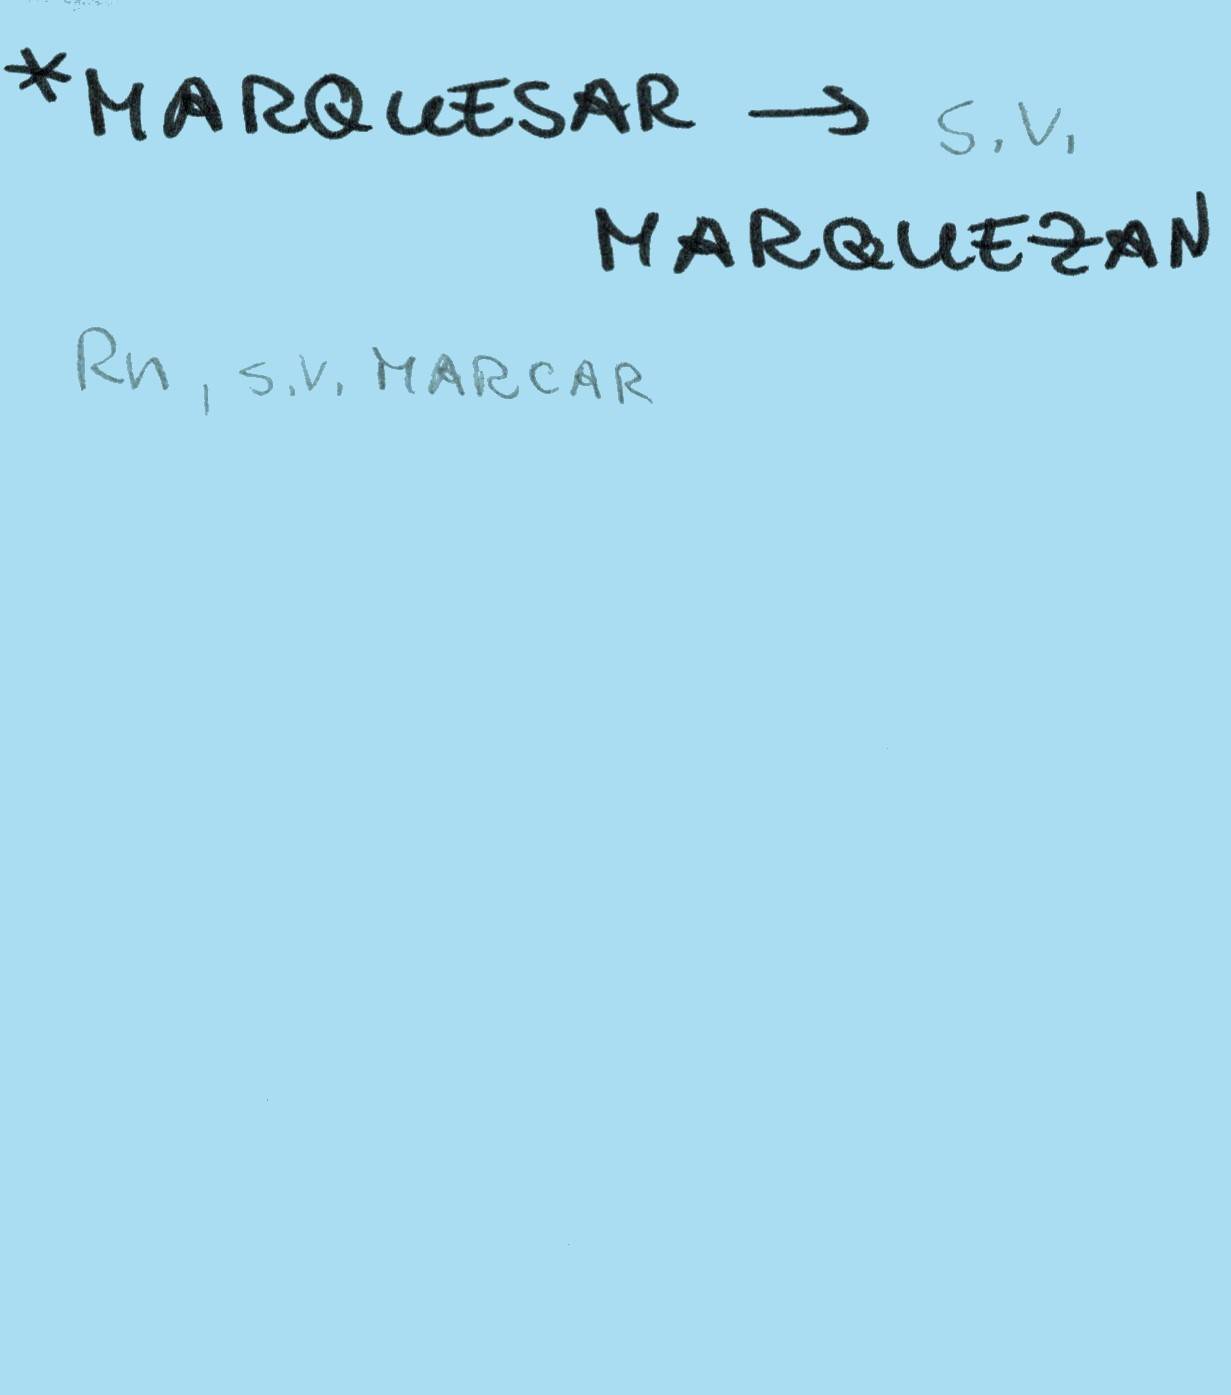 *MARQUESAR → s.v.
MARQUEZAN
Rn, s.v. MARCAR